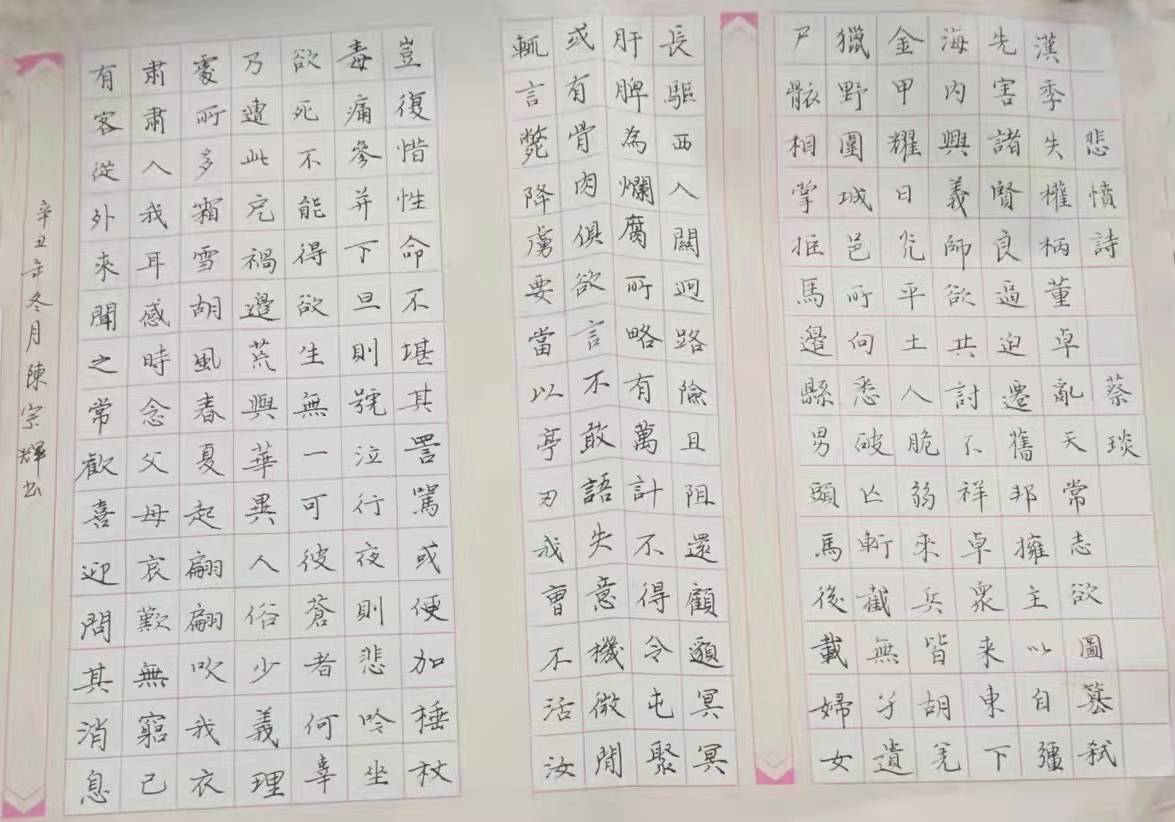 悲憤詩 蔡琰
漢季失權柄董卓亂天常志欲圖篡弒
先害諸賢良逼迫遷舊邦擁主以自彊
海內興義師欲共討不祥卓眾來東下
金甲耀日光平土人脆弱來兵皆胡羌
獵野圍城邑所向悉破亡斬截無孑遺
尸骸相掌拒馬邊縣男頭馬後載婦女
長驅西入關迥路險且阻還顧邈冥冥
肝脾為爛腐所略有萬計不得令屯聚
或有骨肉俱欲言不敢語失意機微間
輒言斃降虜要當以亭刃我曹不活汝
豈復惜性命不堪其詈罵或便加棰杖
毒痛參并下旦則號泣行夜則悲吟坐
欲死不能得欲生無一可彼蒼者何辜
乃遭此厄禍邊荒與華異人俗少義理
處所多霜雪胡風春夏起翩翩吹我衣
肅肅入我耳感時念父母哀歎無窮已
有客從外來聞之常歡喜迎問其消息
辛丑年冬月陳宗輝書